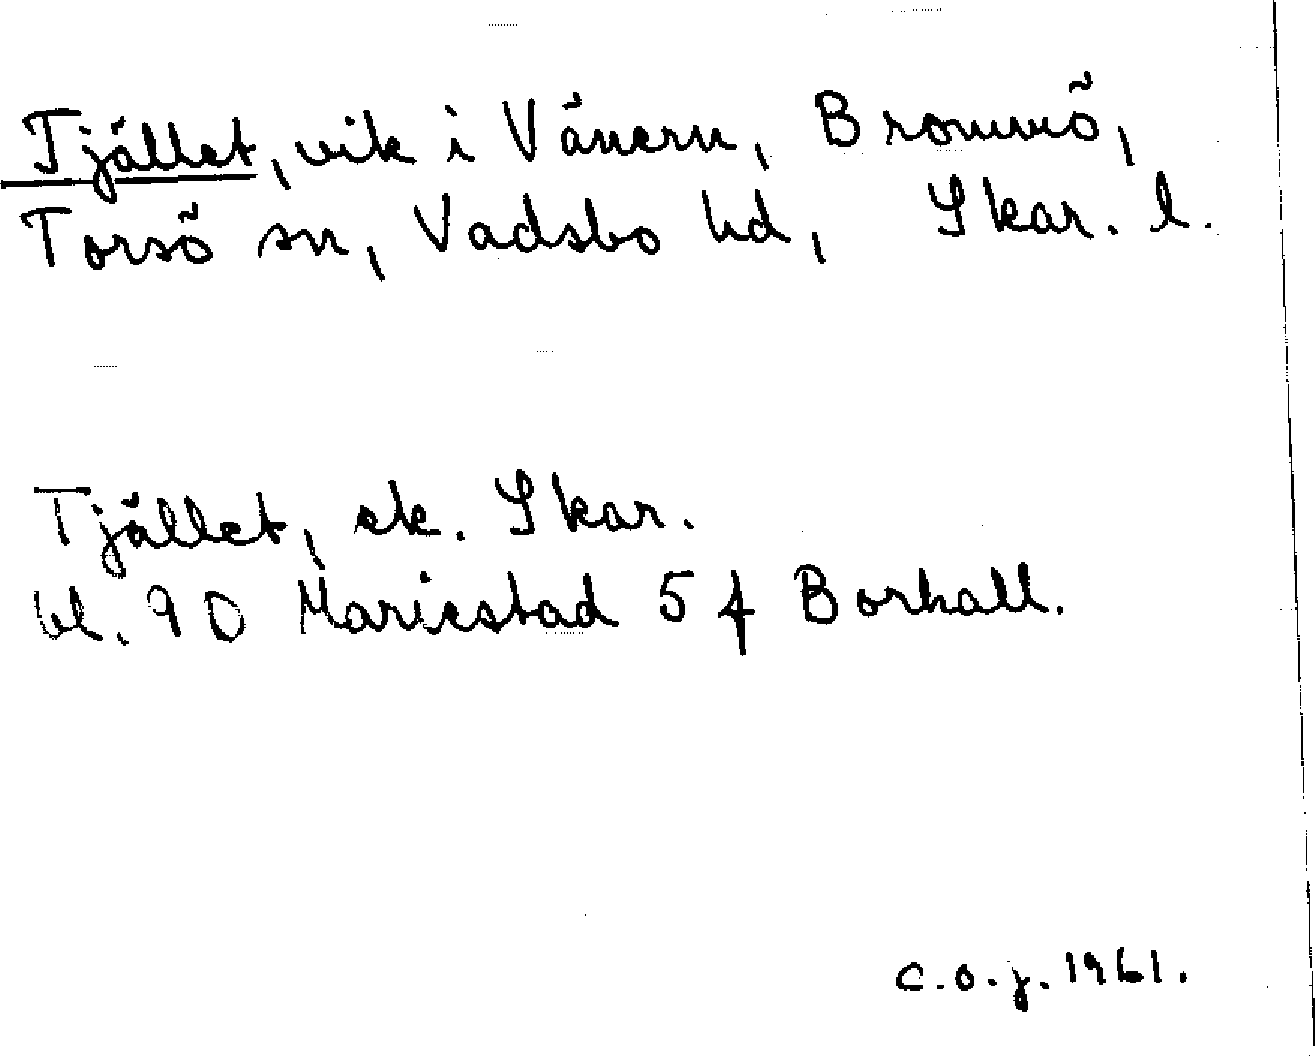 Tjället, vik i Vänern, Brommö,
Torsö sn, Vadsbo hd, Skar. l.
Tjället, ek. Skar.
bl. 9 D Mariestad 5 f Borhall.
C.O.J. 1961.